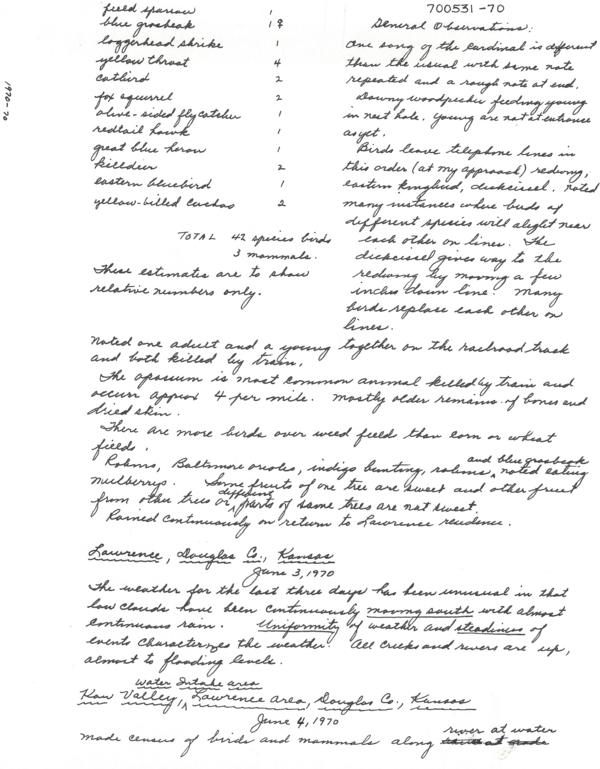 700531-70
1970-70
field sparrow 1
blue grosbeak 1♀
loggerhead shrike 1
yellow throat 4
catbird 2
fox squirrel 2
olive-sided flycatcher 1
redtail hawk 1
great blue heron 1
killdier 2
eastern bluebird 1
yellow-billed cuckoo 2
TOTAL 42 species birds
3 mammals.
These estimates are to show
relative numbers only.
General Observations:
One song of the cardinal is different
than the usual with same note
repeated and a rough note at end.
Downy woodpecker feeding young
in nest hole. Young are not at entrance
as yet.
Birds leave telephone lines in
this order (at my approach) redwing,
eastern kingbird, dickcissel. Noted
many instances where birds of
different species will alight near
each other on lines. The
dickcissel gives way to the
redwing by moving a few
inches down line. Many
birds replace each other on
lines.
Noted one adult and a young together on the railroad track
and both killed by train.
The opossum is most common animal killed by train and
occurr approx 4 per mile. Mostly older remains of bones and
dried skin.
There are more birds over weed field than corn or wheat
fields.
Robins, Baltimore orioles, indigo bunting, robins, and blue grosbeak noted eating
mulberrys. Some fruits of one tree are sweet and other fruit
from other trees or differing parts of same trees are not sweet.
Rained continuously on return to Lawrence residence.
Lawrence, Douglas Co., Kansas
June 3, 1970
The weather for the last three days has been unusual in that
low clouds have been continuously moving south with almost
continuous rain. Uniformity of weather and steadiness of
events characterizes the weather. All creeks and rivers are up,
almost to flooding levels.
Kaw Valley, Water Intake area Lawrence area, Douglas Co., Kansas
June 4, 1970
Made census of birds and mammals along river at water